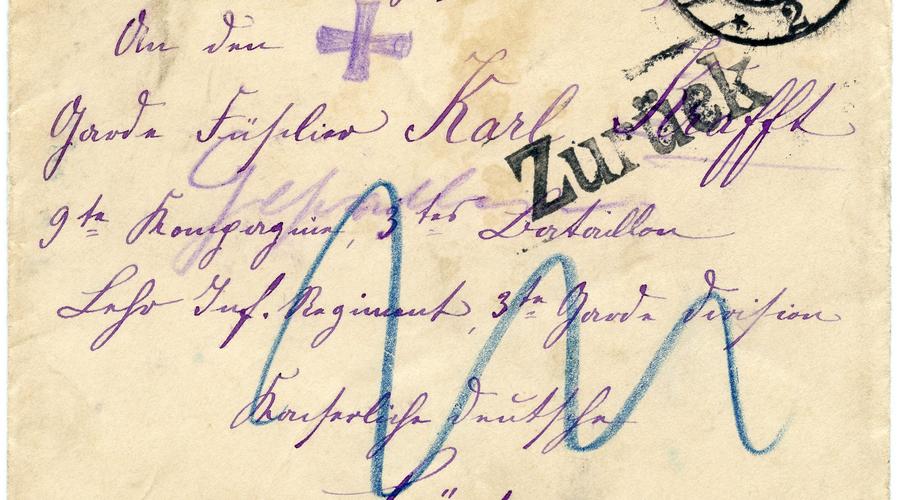 An den
Garde Füsilier Karl Krafft
Zurück
Gefallen
9te Kompagnie, 3tes Bataillon
Lehr Inf. Regiment, 3te Garde Division
Kaiserliche Deutsche